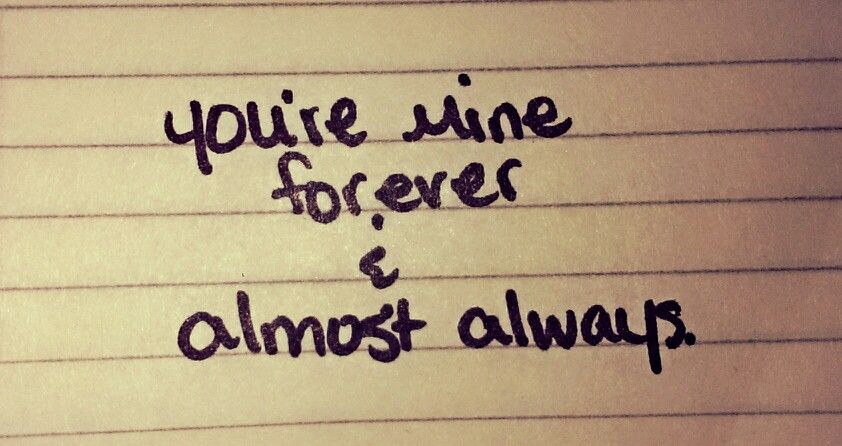 you're mine
forever
&
almost always.